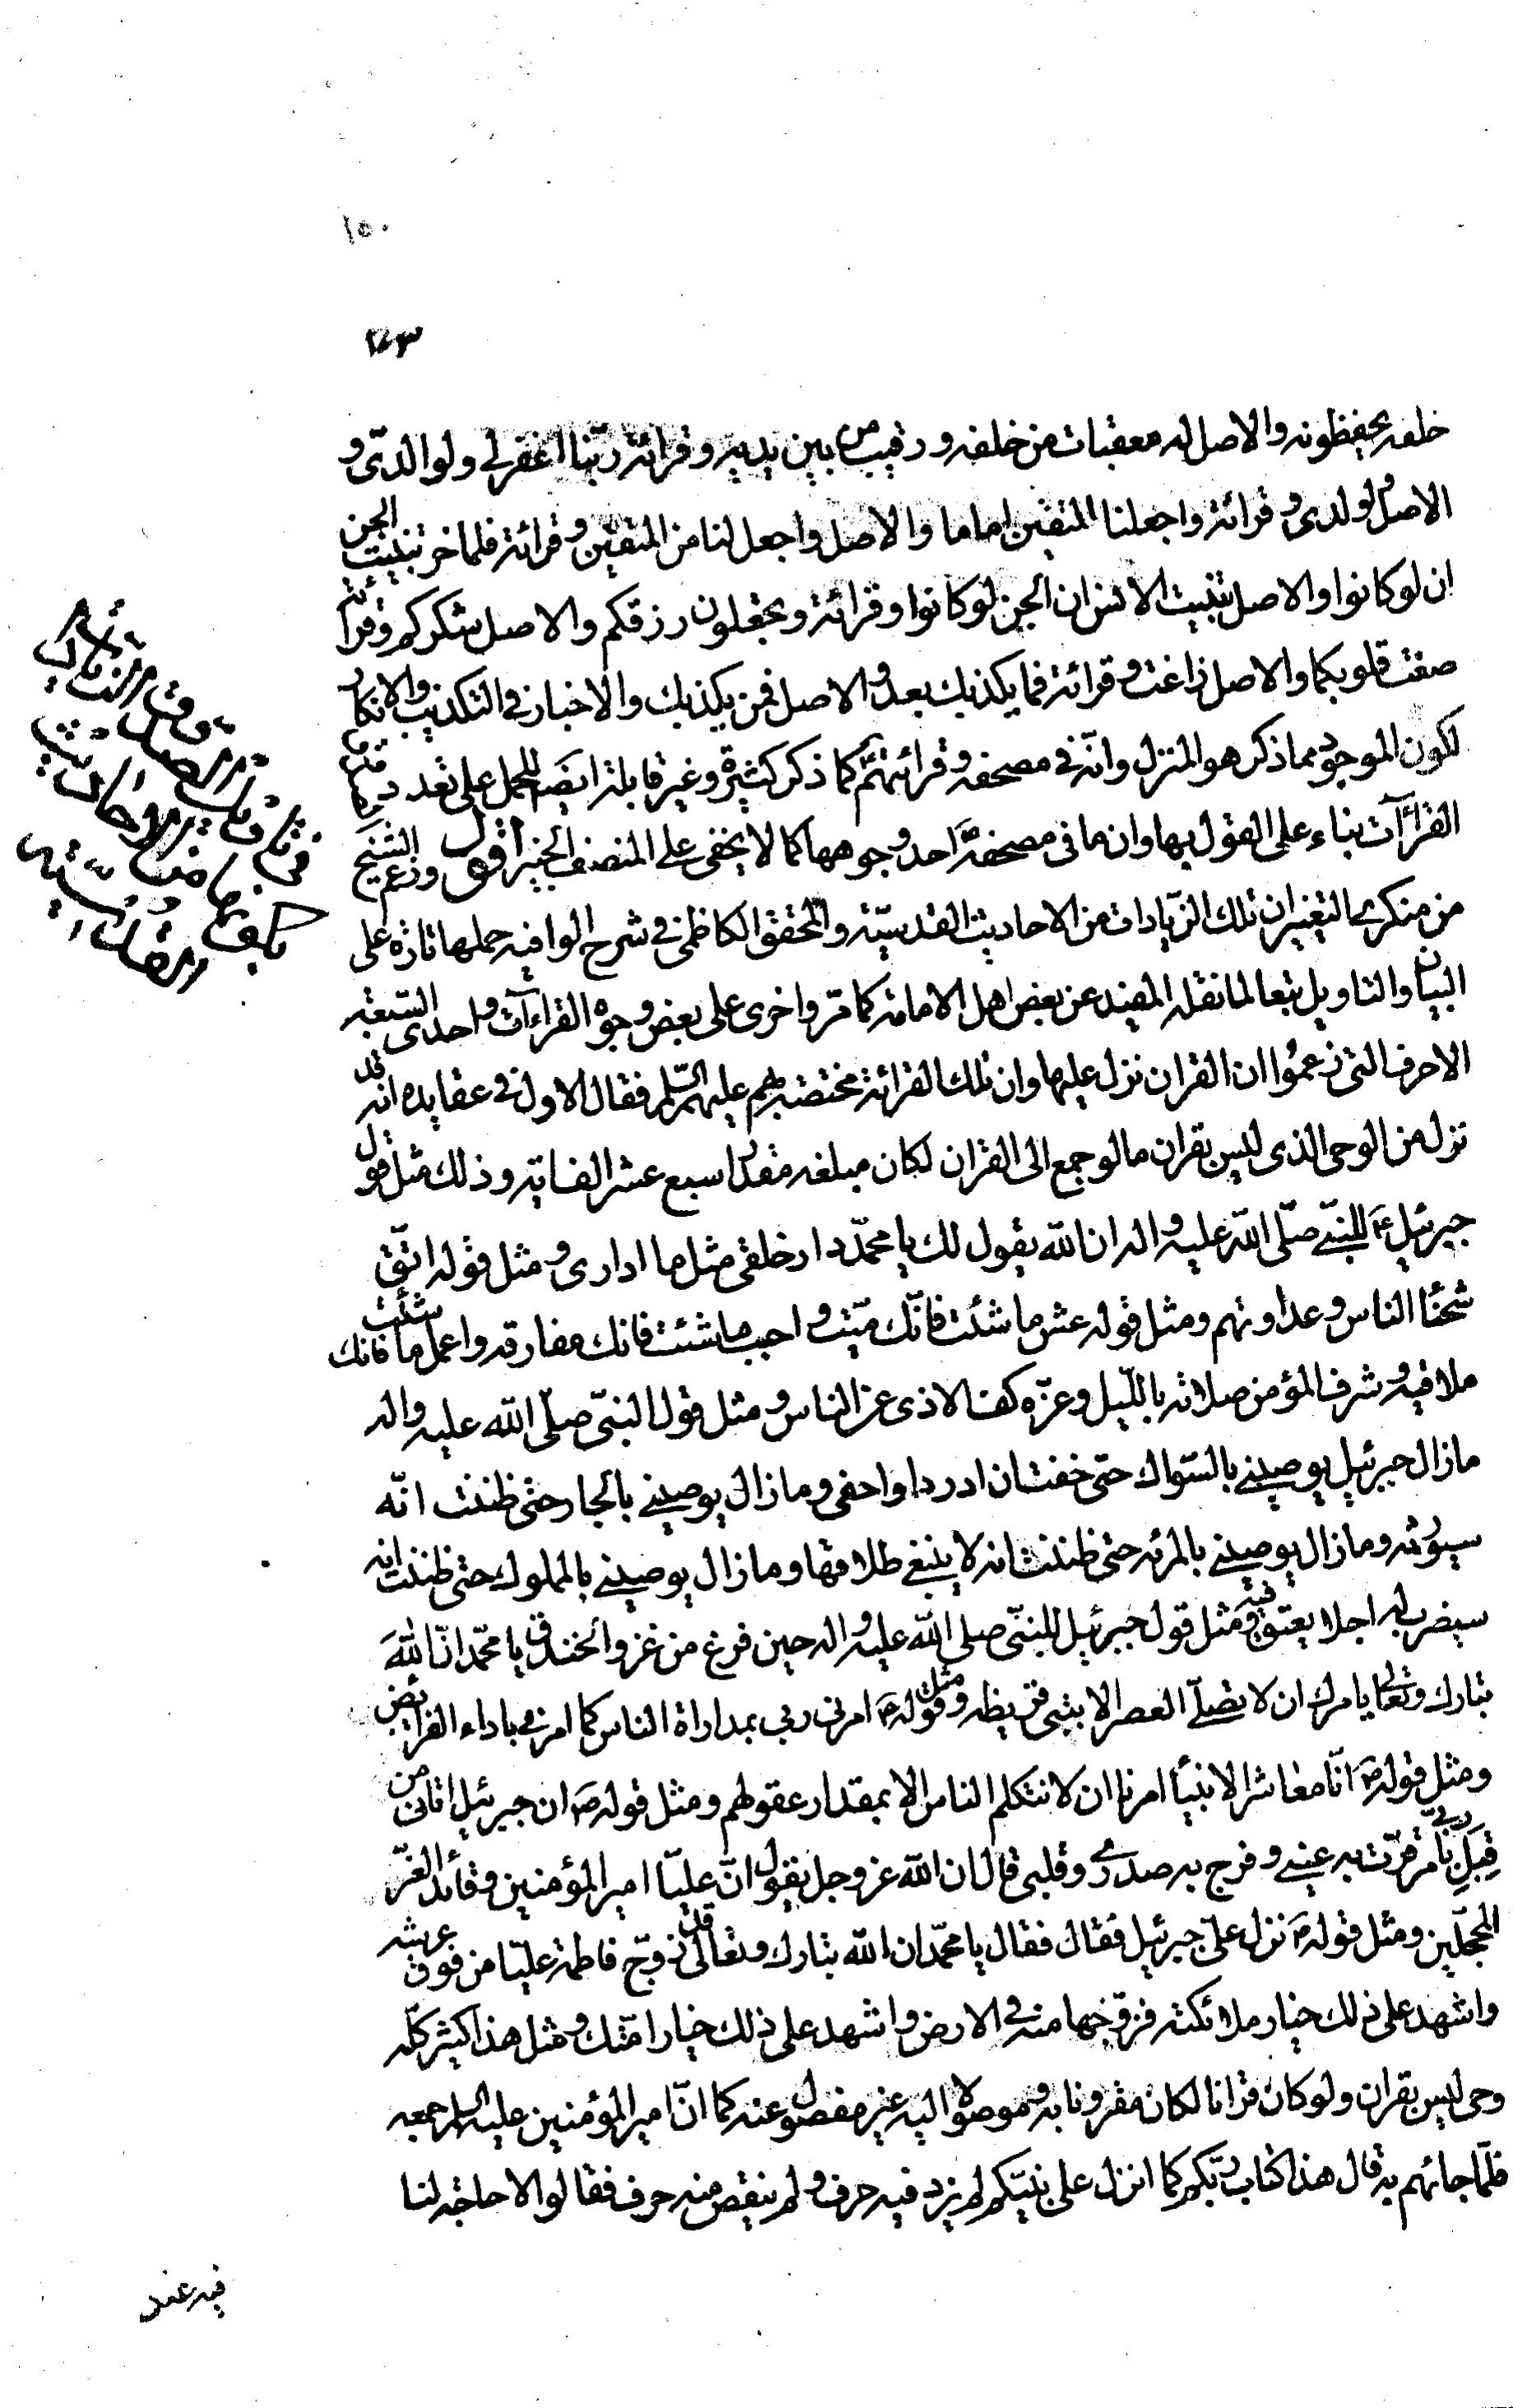 ١٥٠
خلفه يحفظونه والاصل له معقبات من خلفه ورقيب من بين يديه وقرائة ربّنا اغفر لي ولوالدىّ و
الاصل ولولدى وقرائة واجعلنا المتقين اماما والاصل واجعل لنا من المتقين وقرائة فلما خر تبينت الجن
ان لو كانوا والاصل تبينت الانس ان الجن لو كانوا وقرائة وتجعلون رزقكم والاصل شكركم وقرائة
صغت قلوبكما والاصل زاغت وقرائة فما يكذبك بعد والاصل فمن يكذبك والاخبار في التكذيب والانكار
لكون الموجود مما ذكر هو المنزل وانّه في مصحفه وقرائتهم كما ذكر كثيرة وغير قابلة ايضا للحمل على تعدد
القراآت بناء على القول بها وان ما فى مصحفه احد وجوهها كما لا يخفى على المنصف الخبير اقول وزعم الشيخ
من منكرى التغيير ان تلك الزيادات من الاحاديث القدسيّة والمحقق الكاظمى في شرح الوافيه حملها تارة على
البيان والتاويل تبعا لما نقله المفيد عن بعض اهل الامامة كما مرّ واخرى على بعض وجوه القراءات واحدى السّبعة
الاحرف التى زعموا ان القران نزل عليها وان تلك القرائة مختصة بهم عليهم السّلم فقال الاول في عقايده انه قد
نزل من الوحى الذى ليس بقران ما لو جمع الى القران لكان مبلغه مقدار سبع عشر الف اية وذلك مثل قول
جبرئيل ع للنبىّ صلّى اللّه عليه واله ان اللّه يقول لك يا محمّد دار خلقى مثل ما ادارى ومثل قوله اتّق
شحنا الناس وعداوتهم ومثل قوله عش ما شئت فانّك ميّت واحبب ما شئت فانك مفارقه واعمل ما شئت فانك
ملاقيه وشرف المؤمن صلاته باللّيل وعزّه كف الاذى عن الناس ومثل قول النبىّ صلّى اللّه عليه واله
ما زال جبرئيل يوصينى بالسّواك حتى خفت ان ادرد او احفى وما زال يوصينى بالجار حتى ظننت انّه
سيورّثه وما زال يوصينى بالمرئة حتى ظننت انه لا ينبغى طلاقها وما زال يوصينى بالمملوك حتى ظننت انه
سيضرب له اجلا يعتق فيه ومثل قول جبرئيل للنبّى صلى اللّه عليه واله حين فرغ من غزو الخندق يا محمّد انّ اللّه
تبارك وتعالى يامرك ان لا تصلّى العصر الا ببنى قريظه ومثل قوله ص امرنى ربى بمداراة الناس كما امرنى باداء الفرائض
ومثل قوله ص انّا معاشر الانبيآ امرنا ان لا نتكلم الناس الا بمقدار عقولهم ومثل قوله ص ان جبرئيل اتانى من
قِبَل ربى بامر قرّت به عينى وفرج به صدرى وقلبى قال ان اللّه عز وجل يقول انّ عليّا امير المؤمنين وقائد الغرّ
المحجّلين ومثل قوله ص نزل علىّ جبرئيل فقال فقال يا محمّد ان اللّه تبارك وتعالى قد زوّج فاطمة عليّا من فوق عرشه
واشهد على ذلك خيار ملائكته فزوّجها منه في الارض واشهد على ذلك خيار امّتك ومثل هذا كثير كلّه
وحى ليس بقران ولو كان قرانا لكان مقرونا به وموصولا اليه غير مفصول عنه كما انّ امير المؤمنين عليه السلم جمعه
فلمّا جائهم به قال هذا كتاب ربّكم كما انزل على نبيّكم لم يزد فيه حرف ولم ينقص منه حرف فقالوا لا حاجة لنا
فيه عند